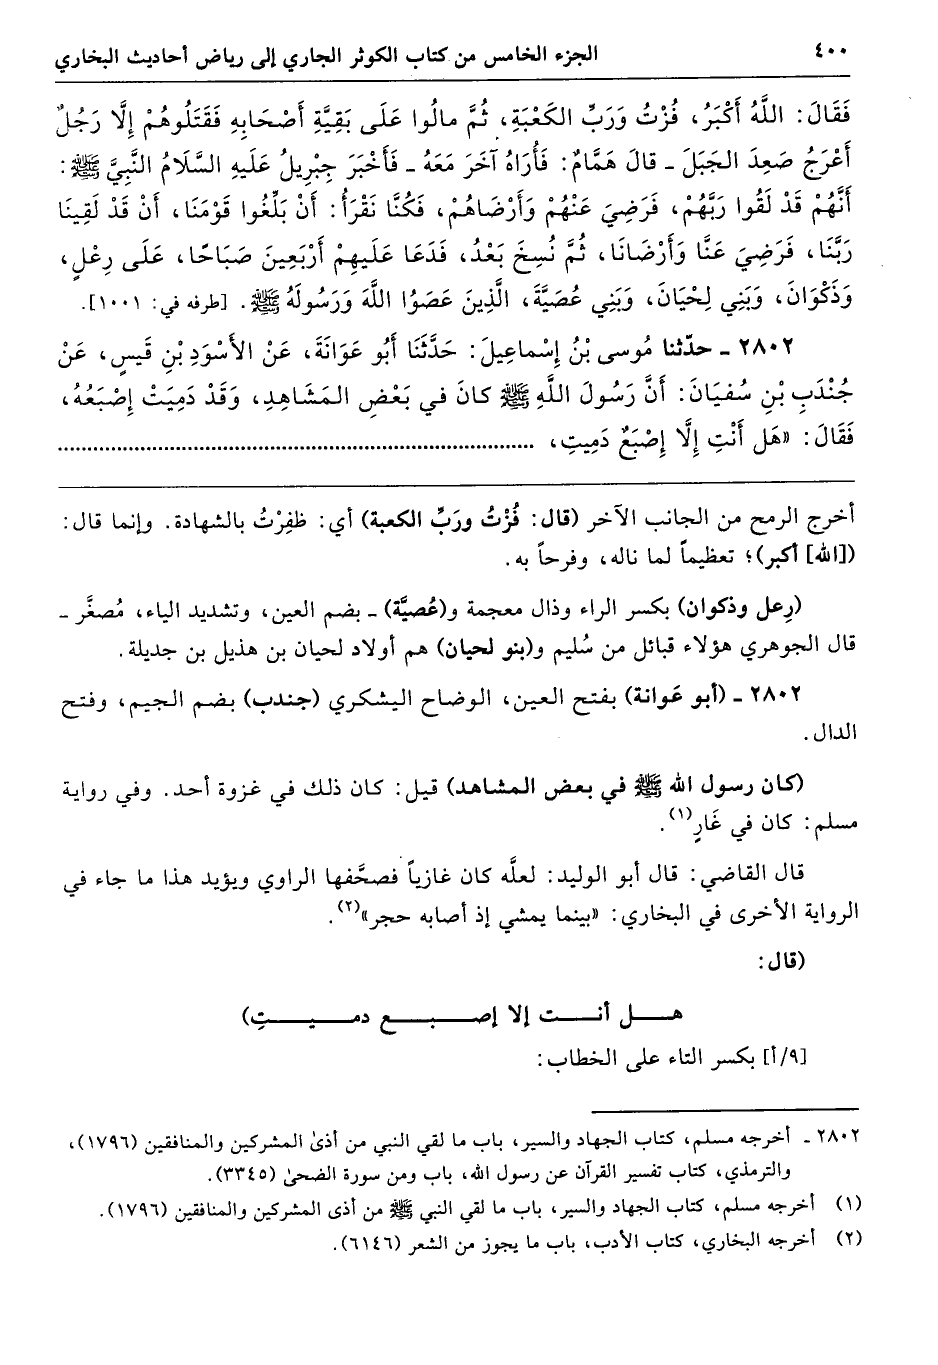 ٤٠٠ الجزء الخامس من كتاب الكوثر الجاري إلى رياض أحاديث البخاري
فَقَالَ: اللَّهُ أَكْبَرُ، فُزْتُ وَرَبِّ الكَعْبَةِ، ثُمَّ مالُوا عَلَى بَقِيَّةِ أَصْحَابِهِ فَقَتَلُوهُمْ إِلَّا رَجُلٌ
أَعْرَجُ صَعِدَ الجَبَلَ - قالَ هَمَّامٌ: فَأُرَاهُ آخَرَ مَعَهُ - فَأَخْبَرَ جِبْرِيلُ عَلَيهِ السَّلَامُ النَّبِيَّ ﷺ:
أَنَّهُمْ قَدْ لَقُوا رَبَّهُمْ، فَرَضِيَ عَنْهُمْ وَأَرْضَاهُمْ، فَكُنَّا نَقْرَأُ: أَنْ بَلِّغُوا قَوْمَنَا، أَنْ قَدْ لَقِينَا
رَبَّنَا، فَرَضِيَ عَنَّا وَأَرْضَانَا، ثُمَّ نُسِخَ بَعْدُ، فَدَعَا عَلَيهِمْ أَرْبَعِينَ صَبَاحًا، عَلَى رِعْلٍ،
وَذَكْوَانَ، وَبَنِي لِحْيَانَ، وَبَنِي عُصَيَّةَ، الَّذِينَ عَصَوُا اللَّهَ وَرَسُولَهُ ﷺ. [طرفه في: ١٠٠١].
٢٨٠٢ - حدّثنا مُوسى بْنُ إِسْماعِيلَ: حَدَّثَنَا أَبُو عَوَانَةَ، عَنْ الأَسْوَدِ بْنِ قَيسٍ، عَنْ
جُنْدَبِ بْنِ سُفيَانَ: أَنَّ رَسُولَ اللَّهِ ﷺ كانَ في بَعْضِ المَشَاهِدِ، وَقَدْ دَمِيَتْ إِصْبَعُهُ،
فَقَالَ: «هَل أَنْتِ إِلَّا إِصْبَعٌ دَمِيتِ، ................................................
أخرج الرمح من الجانب الآخر (قال: فُزْتُ وربِّ الكعبة) أي: ظفِرْتُ بالشهادة. وإنما قال:
([الله] أكبر)؛ تعظيماً لما ناله، وفرحاً به.
(رِعل وذكوان) بكسر الراء وذال معجمة و(عُصيَّة) - بضم العين، وتشديد الياء، مُصغَّر -
قال الجوهري هؤلاء قبائل من سُليم و(بنو لحيان) هم أولاد لحيان بن هذيل بن جديلة.
٢٨٠٢ - (أبو عَوانة) بفتح العين، الوضاح اليشكري (جندب) بضم الجيم، وفتح
الدال.
(كان رسول الله ﷺ في بعض المشاهد) قيل: كان ذلك في غزوة أحد. وفي رواية
مسلم: كان في غَارٍ(١).
قال القاضي: قال أبو الوليد: لعلَّه كان غازياً فصحَّفها الراوي ويؤيد هذا ما جاء في
الرواية الأخرى في البخاري: «بينما يمشي إذ أصابه حجر»(٢).
(قال:
هـــل أنـــت إلا إصـــبـــع دمـــيـــتِ)
[٩/أ] بكسر التاء على الخطاب:
٢٨٠٢ - أخرجه مسلم، كتاب الجهاد والسير، باب ما لقي النبي من أذىٰ المشركين والمنافقين (١٧٩٦)،
والترمذي، كتاب تفسير القرآن عن رسول الله، باب ومن سورة الضحىٰ (٣٣٤٥).
(١) أخرجه مسلم، كتاب الجهاد والسير، باب ما لقي النبي ﷺ من أذى المشركين والمنافقين (١٧٩٦).
(٢) أخرجه البخاري، كتاب الأدب، باب ما يجوز من الشعر (٦١٤٦).